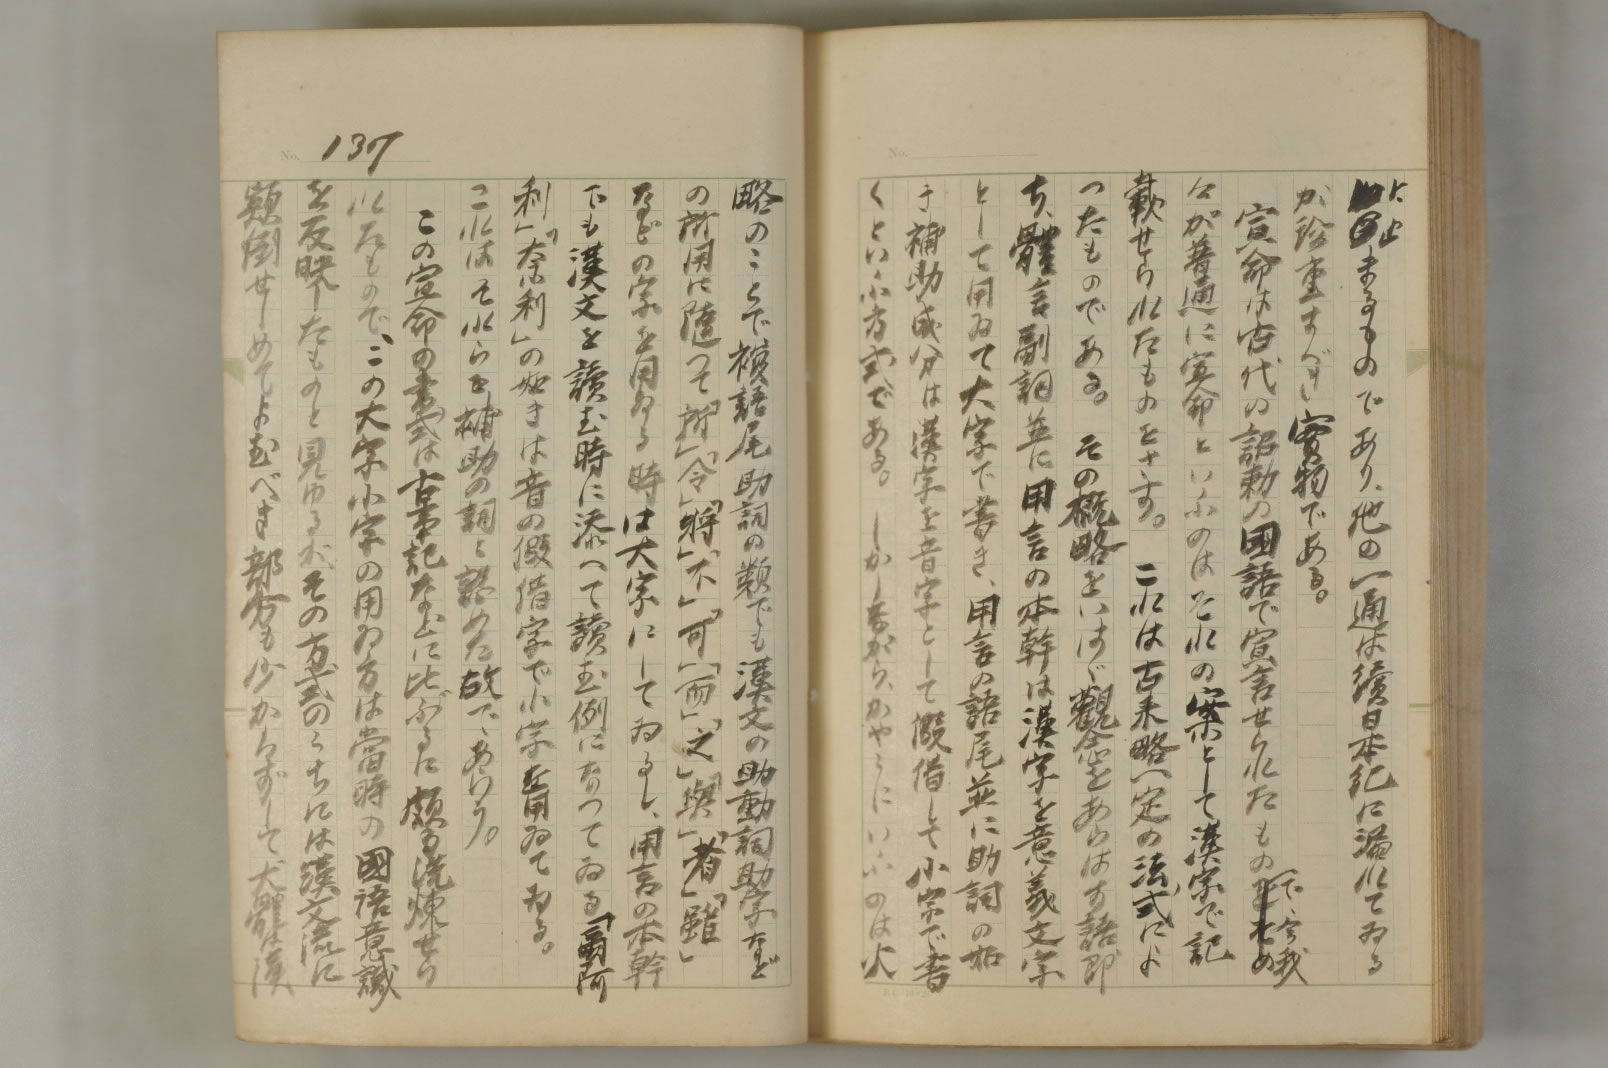 に止まるものであり、他の一通は續日本紀に漏れてゐる
が珍重すべき寶物である。
宣命は古代の詔勅の國語で宣言せられたもので、今我
々が普通に宣命といふのはそれの案として漢字で記
載せられたものをさす。これは古来略一定の法式によ
つたものである。その概略をいはゞ觀念をあらはす語即
ち、體言副詞並に用言の本幹は漢字を意義文字
として用ゐて大字で書き、用言の語尾並に助詞の如
き補助成分は漢字を音字として假借して小字で書
くといふ方式である。しかしながら、かやうにいふのは大
No. 137
略のことで複語尾助詞の類でも漢文の助動詞助字など
の所用に隨つて「所」「令」「將」「不」「可」「而」「之」「與」「者」「雖」
などの字を用ゐる時は大字にしてゐるし、用言の本幹
でも漢文を讀む時に添へて讀む例になつてゐる「爾阿
利」「奈利」の如きは音の假借字で小字を用ゐてゐる。
これはそれらを補助の詞と認めた故であらう。
この宣命の書式は古事記などに比ぶるに頗る洗煉せら
れたもので、この大字小字の用ゐ方は當時の國語意識
を反映したものと見ゆるが、その方式のうちには漢文流に
顚倒せしめてよむべき部分も少からずして大體は漢
No.